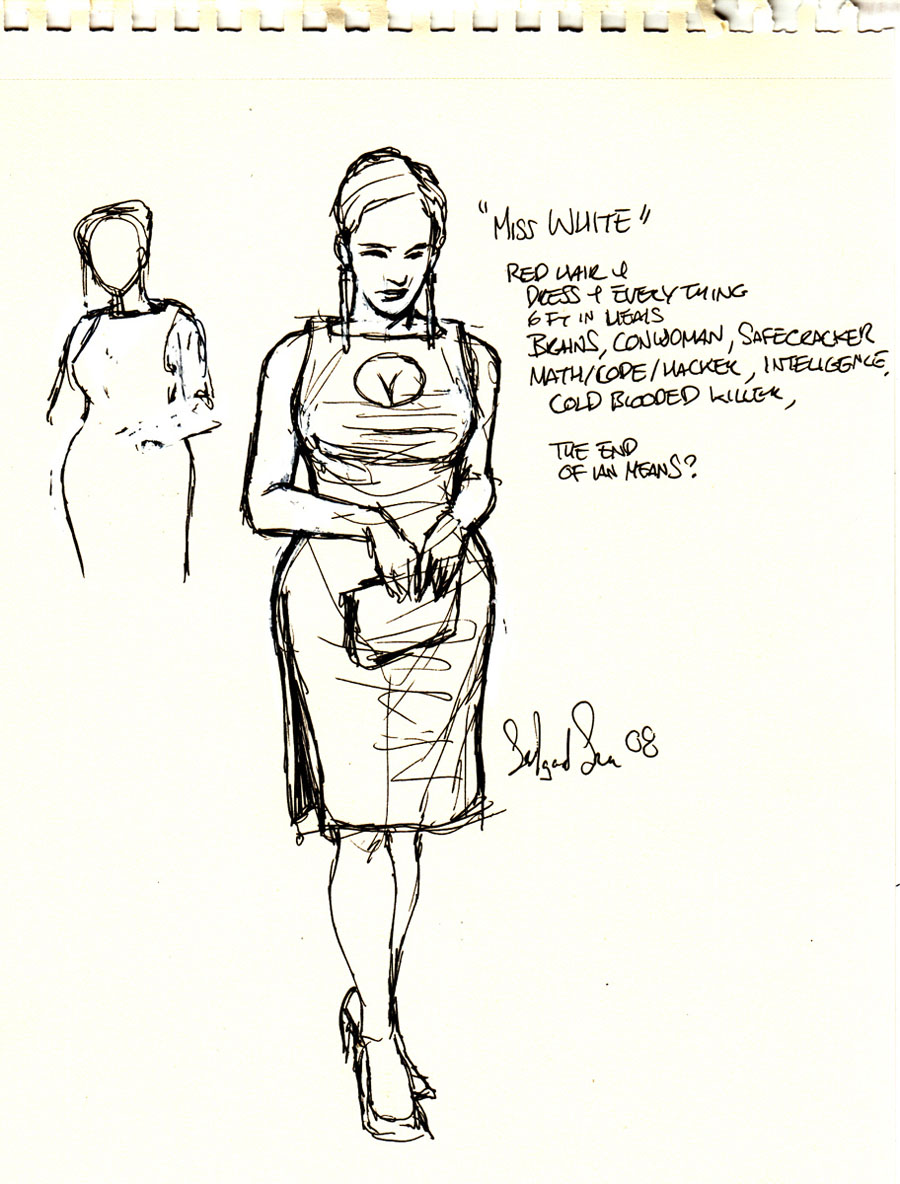 "MISS WHITE"
RED HAIR &
DRESS & EVERYTHING
6 FT IN HEALS
BRAINS, CONWOMAN, SAFECRACKER
MATH/CODE/HACKER, INTELLIGENCE,
COLD BLOODED KILLER,
THE END
OF IAN MEANS?
08